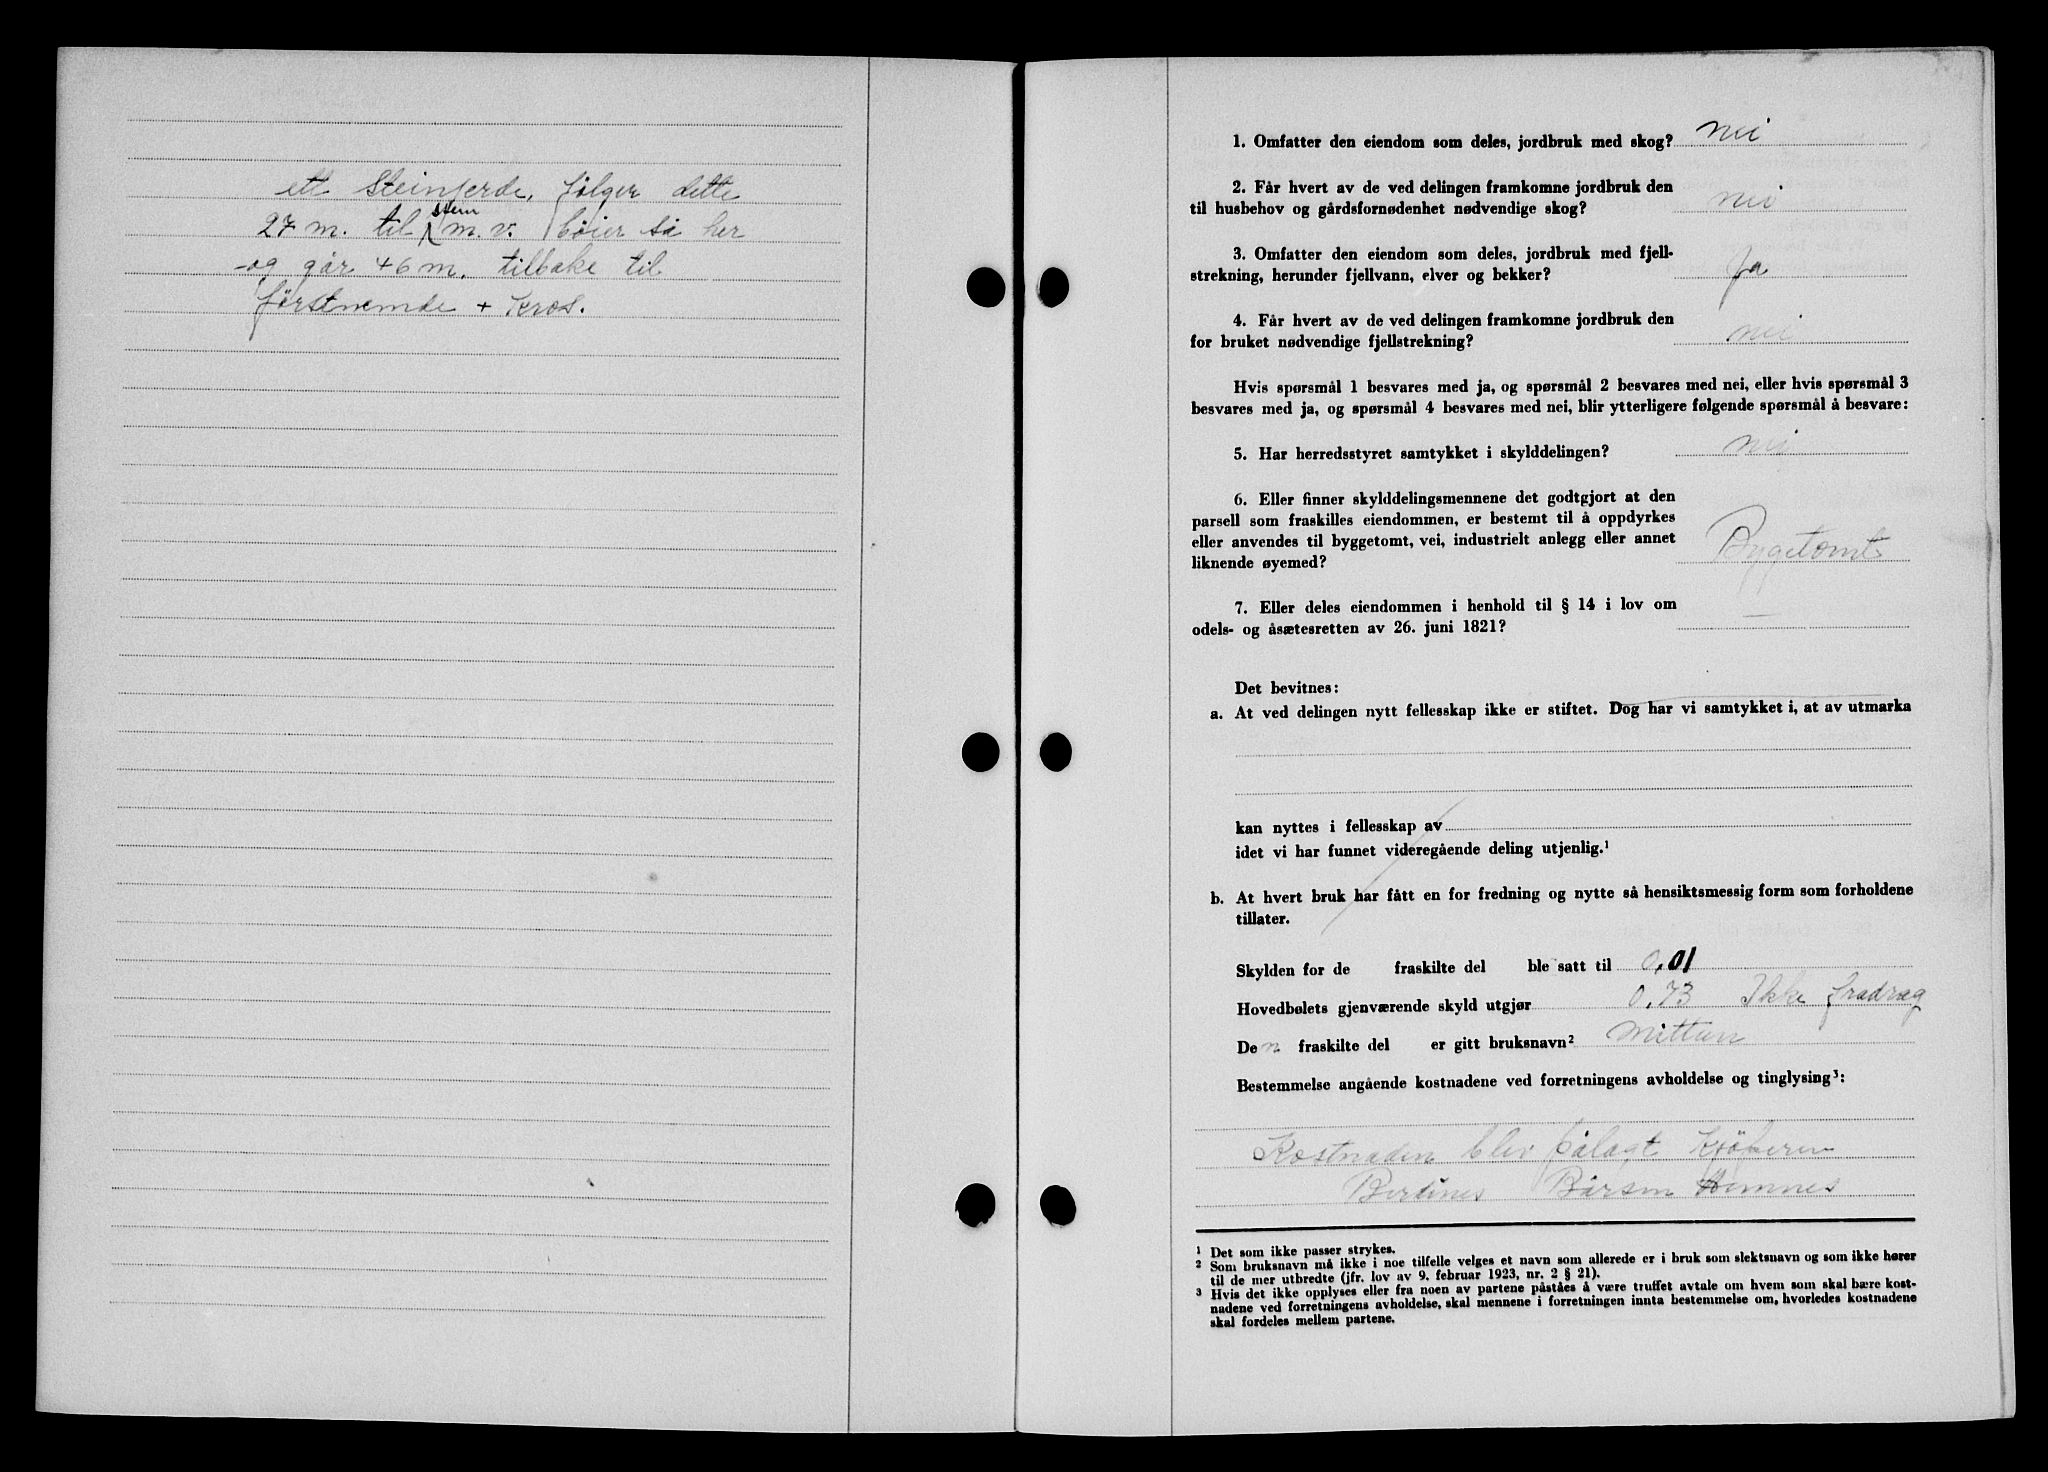 ett Steinjerde, følger dette
27 m. til stein m. v. bøier så her
og går 46 m. tilbake til
førstnemde + Kros.
1. Omfatter den eiendom som deles, jordbruk med skog? nei
2. Får hvert av de ved delingen framkomne jordbruk den
til husbehov og gårdsfornødenhet nødvendige skog? nei
3. Omfatter den eiendom som deles, jordbruk med fjell-
strekning, herunder fjellvann, elver og bekker? ja
4. Får hvert av de ved delingen framkomne jordbruk den
for bruket nødvendige fjellstrekning? nei
Hvis spørsmål 1 besvares med ja, og spørsmål 2 besvares med nei, eller hvis spørsmål 3
besvares med ja, og spørsmål 4 besvares med nei, blir ytterligere følgende spørsmål å besvare:
5. Har herredsstyret samtykket i skylddelingen? nei
6. Eller finner skylddelingsmennene det godtgjort at den
parsell som fraskilles eiendommen, er bestemt til å oppdyrkes
eller anvendes til byggetomt, vei, industrielt anlegg eller annet
liknende øyemed? Bygetomt
7. Eller deles eiendommen i henhold til § 14 i lov om
odels- og åsætesretten av 26. juni 1821? —
Det bevitnes:
a. At ved delingen nytt fellesskap ikke er stiftet. Dog har vi samtykket i, at av utmarka
kan nyttes i fellesskap av
idet vi har funnet videregående deling utjenlig.¹
b. At hvert bruk har fått en for fredning og nytte så hensiktsmessig form som forholdene
tillater.
Skylden for de fraskilte del ble satt til 0,01
Hovedbølets gjenværende skyld utgjør 0,73 Ikke fradrag
Den fraskilte del er gitt bruksnavn² Mittun
Bestemmelse angående kostnadene ved forretningens avholdelse og tinglysing³:
Kostnaden blev pålagt Kjöperen
Bårsen Hemnes
¹ Det som ikke passer strykes.
² Som bruksnavn må ikke i noe tilfelle velges et navn som allerede er i bruk som slektsnavn og som ikke hører
til de mer utbredte (jfr. lov av 9. februar 1923, nr. 2 § 21).
³ Hvis det ikke opplyses eller fra noen av partene påståes å være truffet avtale om hvem som skal bære kost-
nadene ved forretningens avholdelse, skal mennene i forretningen innta bestemmelse om, hvorledes kostnadene
skal fordeles mellem partene.